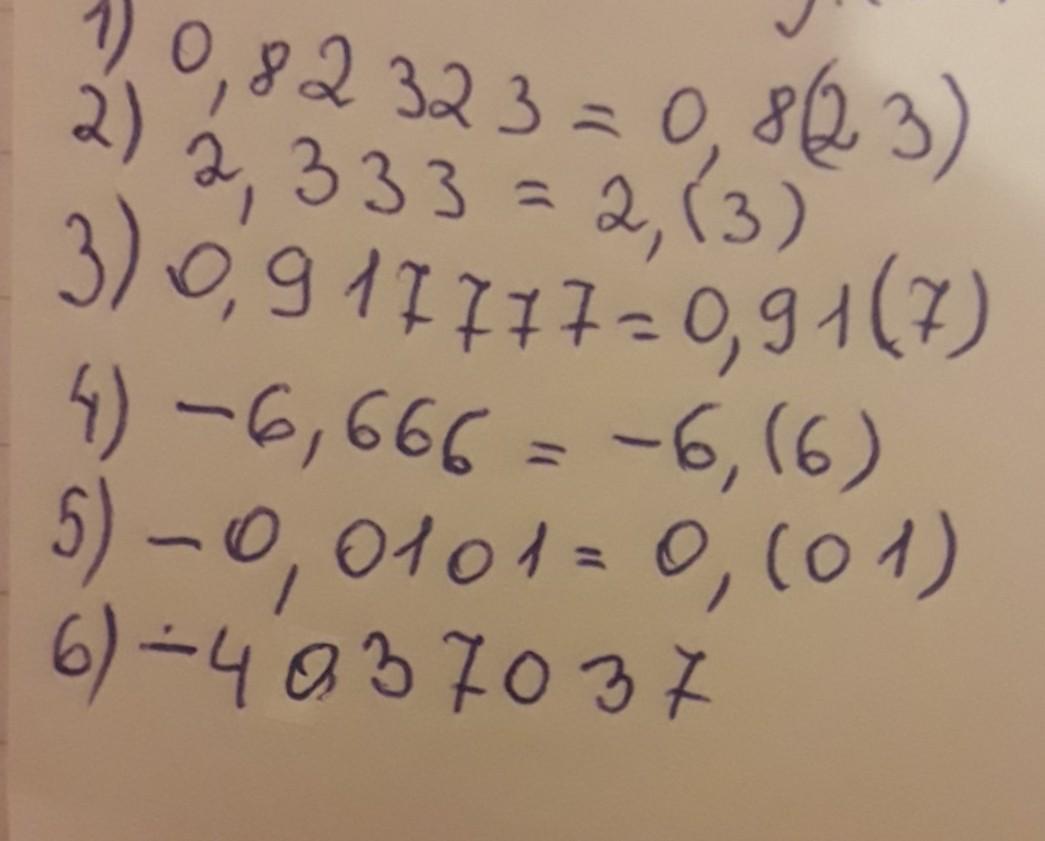 1) 0,82323 = 0,8(23)
2) 2,333 = 2,(3)
3) 0,917777 = 0,91(7)
4) -6,666 = -6,(6)
5) -0,0101 = 0,(01)
6) -4037037